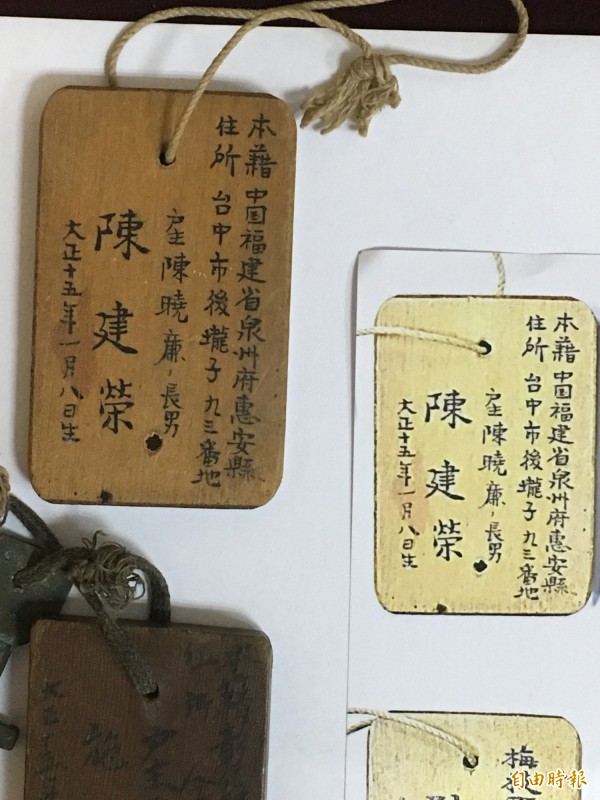 本藉 中国福建省泉州府惠安縣
住所 台中市後壠子九三番地
戸主陳曉廉ノ長男
陳建榮
大正十五年一月八日生
本藉 中国福建省泉州府惠安縣
住所 台中市後壠子九三番地
戸主陳曉廉ノ長男
陳建榮
大正十五年一月八日生
戸主
施
梅
自由時報